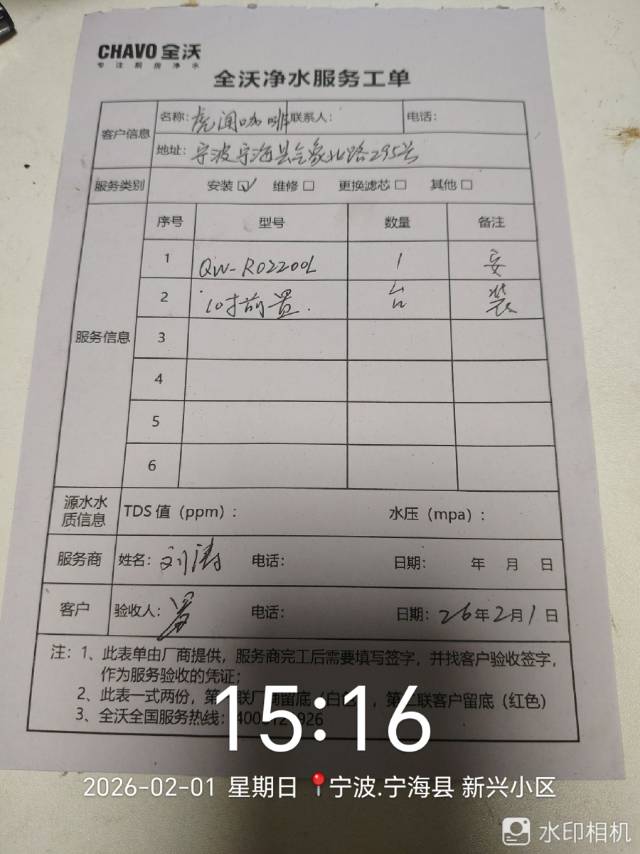 CHAVO 全沃
专注厨房净水
全沃净水服务工单
客户信息 名称: 虎闻咖啡 联系人: 电话:
地址: 宁波宁海县气象北路295号
服务类别 安装☑ 维修□ 更换滤芯□ 其他□
服务信息 序号 型号 数量 备注
1 QW-RO2200L 1 安
2 10寸前置. 台 装
3
4
5
6
源水水质信息 TDS 值(ppm): 水压(mpa):
服务商 姓名: 刘涛 电话: 日期: 年 月 日
客户 验收人: 电话: 日期: 26年2月1日
注: 1、此表单由厂商提供,服务商完工后需要填写签字,并找客户验收签字,
作为服务验收的凭证;
2、此表一式两份,第一联厂商留底(白色),第二联客户留底(红色)
3、全沃全国服务热线:
15:16
2026-02-01 星期日 宁波.宁海县 新兴小区
水印相机